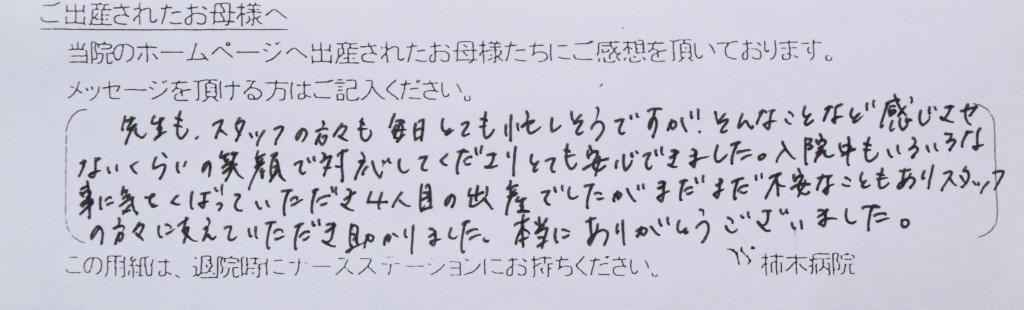 ご出産されたお母様へ
当院のホームページへ出産されたお母様たちにご感想を頂いております。
メッセージを頂ける方はご記入ください。
先生も、スタッフの方々も毎日とても忙しそうですが、そんなことなど感じさせ
ないくらいの笑顔で対応してくださりとても安心できました。入院中もいろいろな
事に気をくばっていただき4人目の出産でしたがまだまだ不安なこともありスタッフ
の方々に支えていただき助かりました。本当にありがとうございました。
この用紙は、退院時にナースステーションにお持ちください。 柿木病院